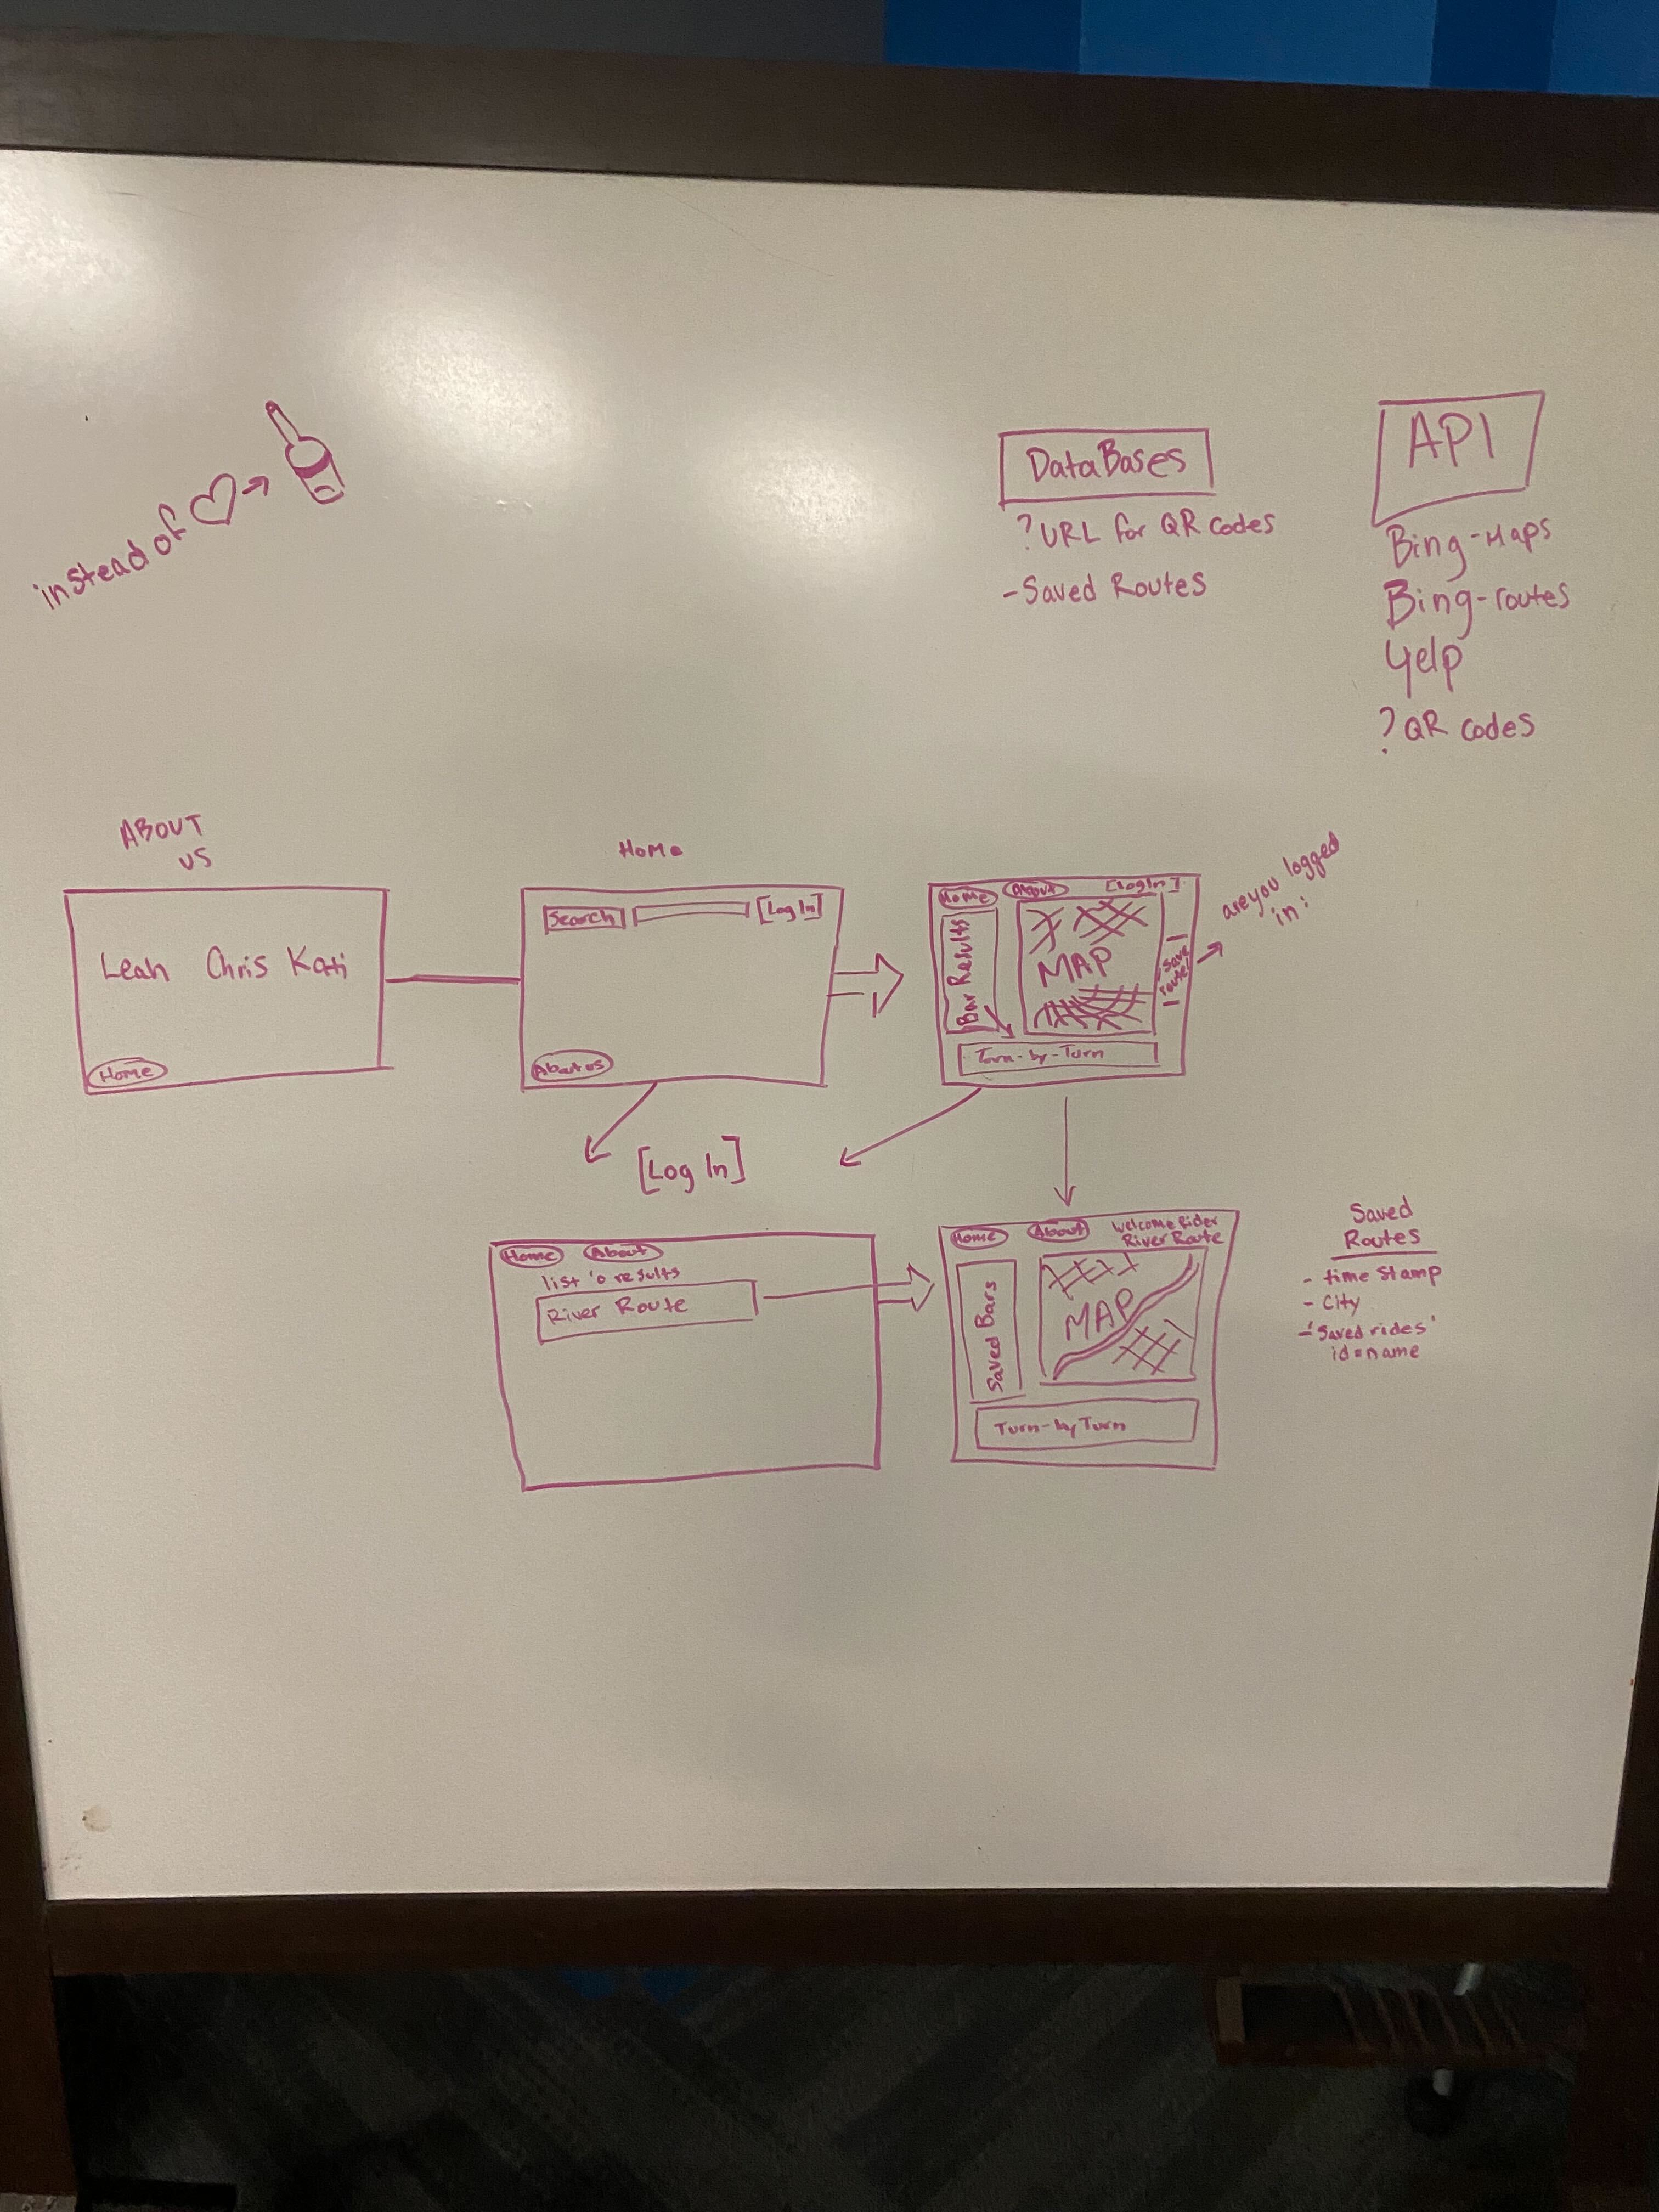 instead of
DataBases
? URL for QR codes
- Saved Routes
API
Bing-Maps
Bing-routes
Yelp
? QR codes
ABOUT
US
Leah Chris Kati
Home
Home
Search [Log In]
About us
Home About [Log In]
Bar Results
MAP
Save
route!
Turn-by-Turn
are you logged
in:
[Log In]
Home About
list 'o results
River Route
Home About Welcome Rider
River Route
Saved Bars
MAP
Turn-by Turn
Saved
Routes
- time stamp
- City
- 'Saved rides'
id=name